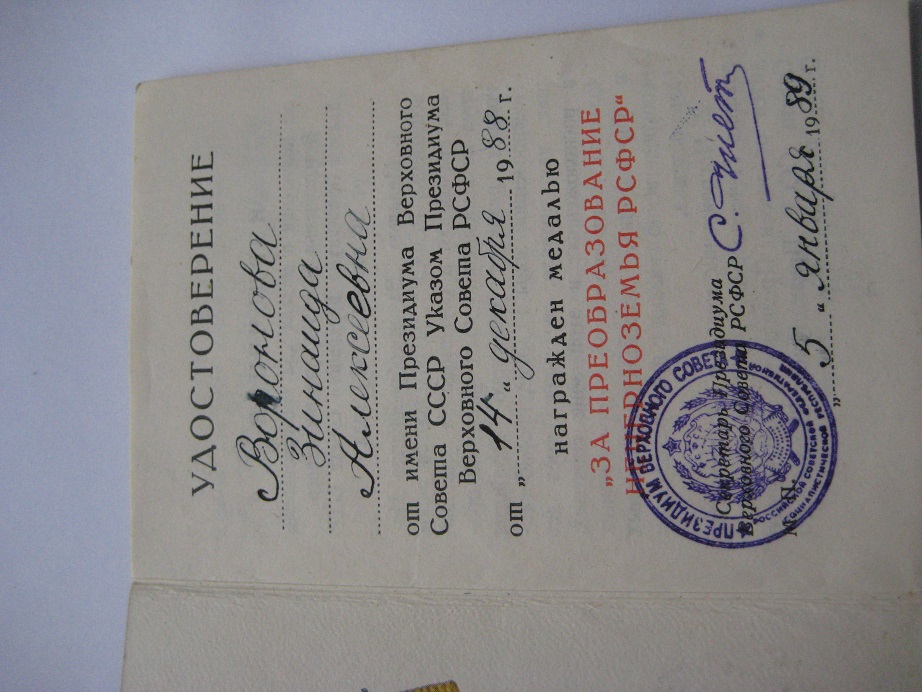 УДОСТОВЕРЕНИЕ
Воронова
Зинаида
Алексеевна
от имени Президиума Верховного
Совета СССР Указом Президиума
Верховного Совета РСФСР
от „14“ декабря 1988 г.
награжден медалью
„ЗА ПРЕОБРАЗОВАНИЕ
НЕЧЕРНОЗЕМЬЯ РСФСР“
Секретарь Президиума
Верховного Совета РСФСР
М. П.
„5“ января 1989 г.
ПРЕЗИДИУМ ВЕРХОВНОГО СОВЕТА
РОССИЙСКОЙ СОВЕТСКОЙ ФЕДЕРАТИВНОЙ
СОЦИАЛИСТИЧЕСКОЙ РЕСПУБЛИКИ